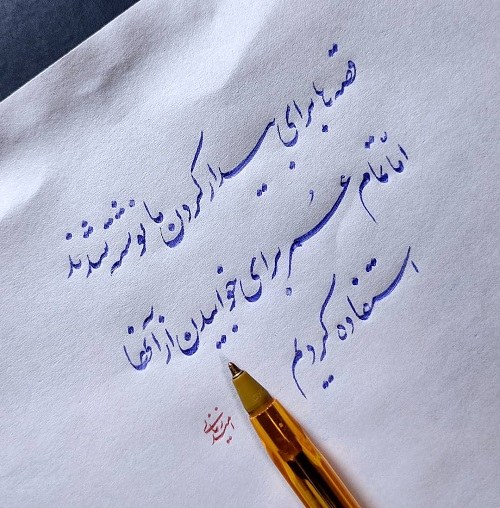 قصه ها برای بیدار کردن ما نوشته شدند
اما تمام عُمر برای خوابیدن از آنها
استفاده کردیم